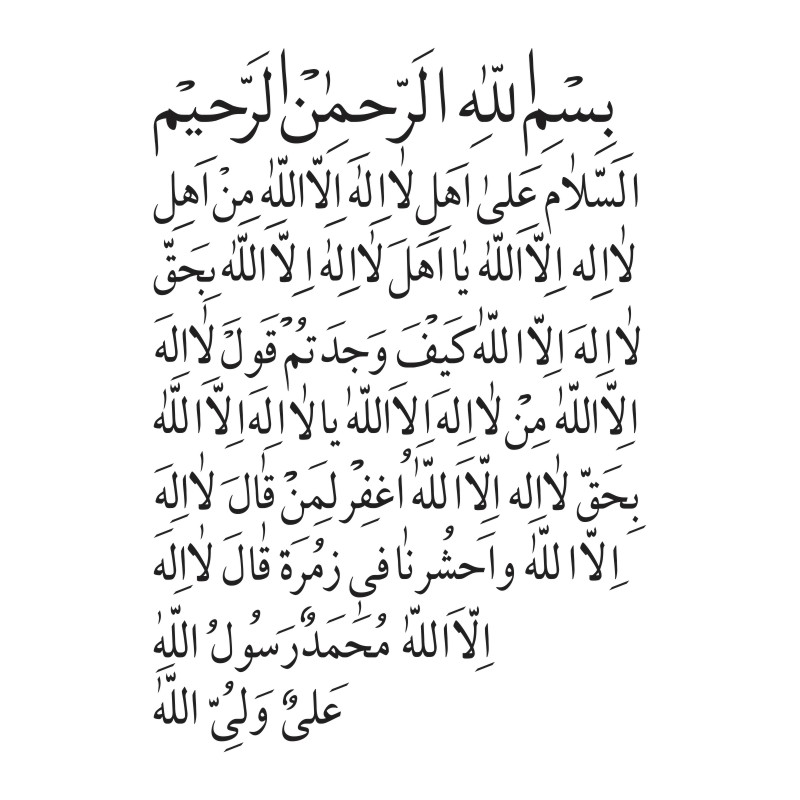 بِسْمِ اللّٰهِ الَرَّحمِٰنْ الَرَّحیْم
الَسَّلاٰم عَلیٰ اَهَلِ لاٰ اِلهَٰ اِلاّ اللّٰه مِنْ اَهلِ
لاٰ اِله اِلاَّ اللّٰه یٰا اَهَلَ لاٰ اِلهٰ اِلاَّ اللّٰه بِحَقّ
لاٰ اِلهَ اِلاَّ اللّٰه کَیْفَ وَجَدَتمُْ قَولَْ لاٰ اِلهَ
اِلاَّ اللّٰه مِنْ لاٰ اِلهَ اِلاَ اللّٰه یا لاٰ اِلهَ اِلاَّ اللّٰه
بِحَقّ لاٰ اِله اِلاَّ اللّٰه اُغفِرْ لِمَنْ قٰالَ لاٰ اِلهَ
اِلاَّ اللّٰه واَحشُرنٰا فی زمُرَة قٰالَ لاٰ اِلهَ
اِلاَّ اللّٰه مُحَمَدٌ رَسُولُ اللّٰه
عَلیٌ وَلیُِّ اللّٰه